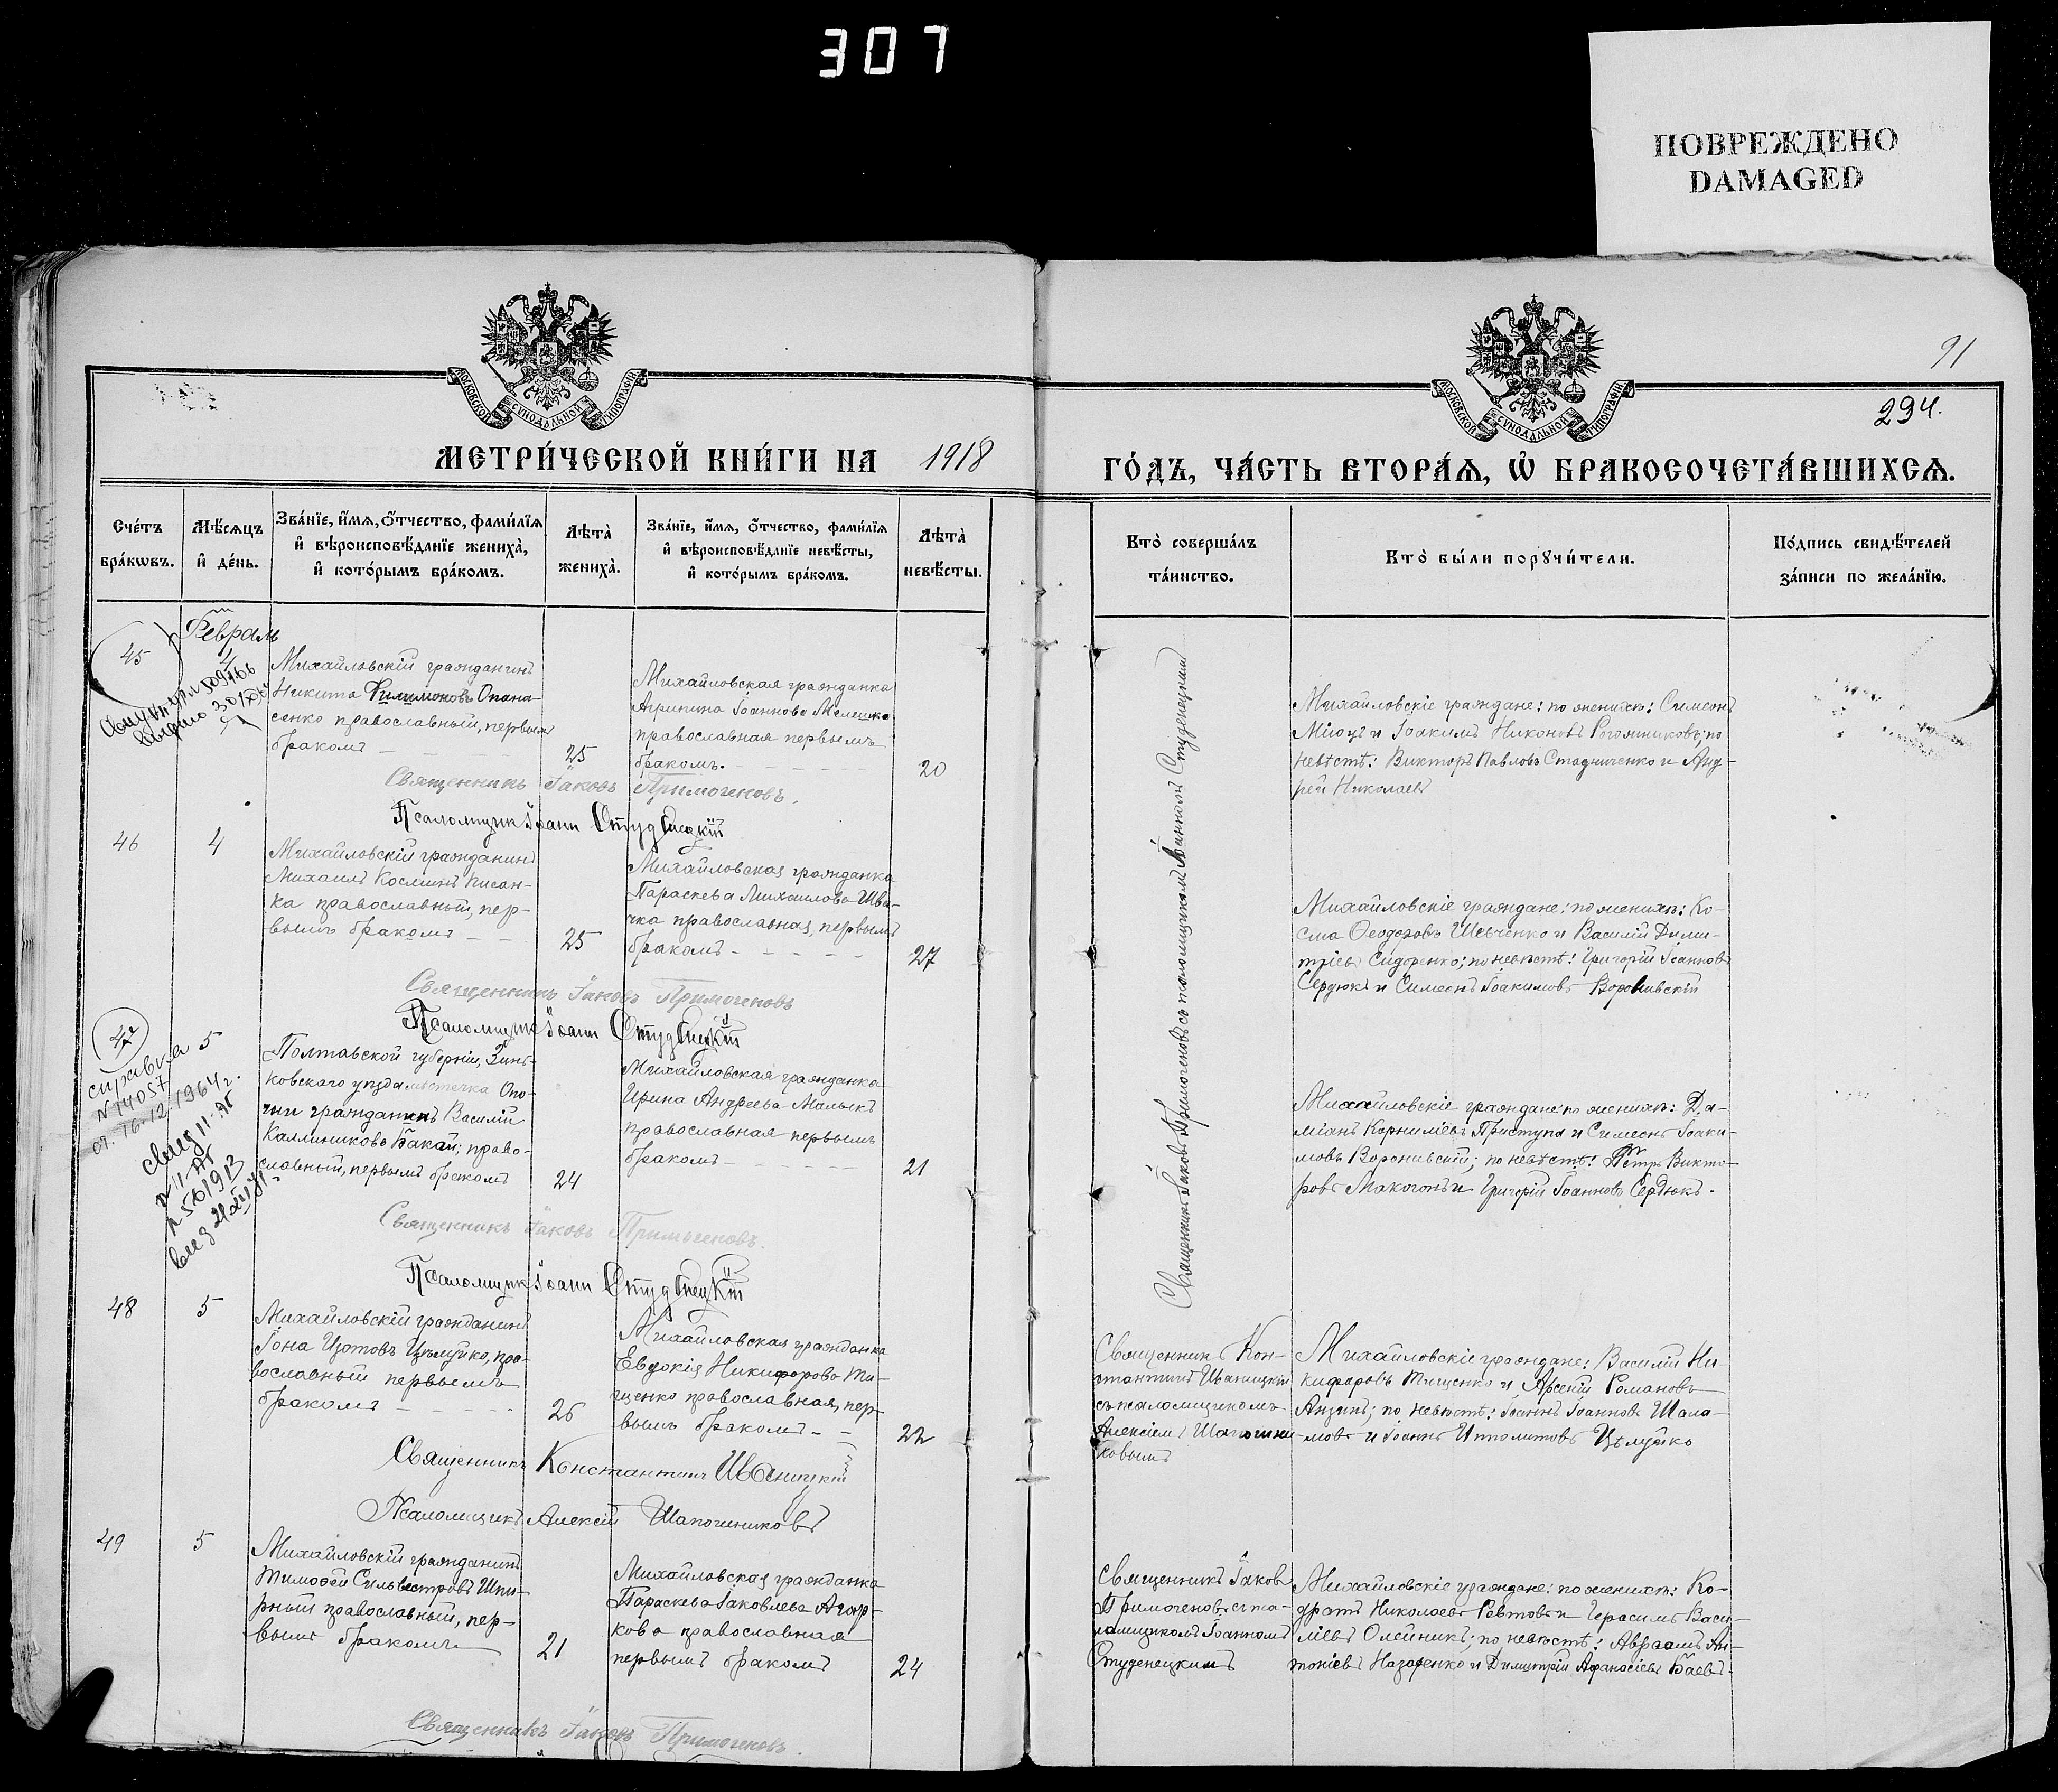 307
ПОВРЕЖДЕНО
DAMAGED
МОСКОВСКОЙ СУНОДАЛЬНОЙ ТИПОГРАФІИ
МОСКОВСКОЙ СУНОДАЛЬНОЙ ТИПОГРАФІИ
91
294.
МЕТРИ́ЧЕСКОЙ КНИ́ГИ НА 1918
ГО́ДЪ, ЧА́СТЬ ВТОРА́Ѧ, Ѽ БРАКОСОЧЕТА́ВШИХСѦ.
Сче́тъ
бра́кѡвъ.
Мѣ́сѧцъ
и҆ де́нь.
Зва́нїе, и҆́мѧ, ѻ҆́тчество, фами́лїѧ
и҆ вѣроисповѣ́данїе жениха̀,
и҆ кото́рымъ бра́комъ.
Лѣта̀
жениха̀.
Зва́нїе, и҆́мѧ, ѻ҆́тчество, фами́лїѧ
и҆ вѣроисповѣ́данїе невѣ́сты,
и҆ кото́рымъ бра́комъ.
Лѣта̀
невѣ́сты.
Кто̀ соверша́лъ
та́инство.
Кто̀ бы́ли порꙋчи́тели.
По́дпись свидѣ́телей
за́писи по жела́нїю.
45
Февраль
Михайловскій гражданинъ
Никита Филимоновъ Опана-
сенко православный, первымъ
бракомъ
25
Михайловская гражданка
Агрипина Іоаннова Мелешко
православная первымъ
бракомъ.
20
Михайловскіе граждане: по женихѣ: Симеонъ
и Іоакимъ Никоновъ Рогожниковъ; по
невѣстѣ: Викторъ Павловъ Стадниченко и Анд-
рей Николаевъ
Священникъ Іаковъ Примогеновъ.
Псаломщикъ Іоаннъ Студенецкій
Священникъ Іаковъ Примогеновъ съ псаломщикомъ Іоанномъ Студенецкимъ
46
4
Михайловскій гражданинъ
Михаилъ Косминъ Писан-
ка православный, пер-
вымъ бракомъ
25
Михайловская гражданка
Параскева Михаилова Шва-
чка православная, первымъ
бракомъ
27
Михайловскіе граждане: по женихѣ: Ко-
сма Ѳеодоровъ Шевченко и Василій Дими-
тріевъ Сидоренко; по невѣстѣ: Григорій Іоанновъ
Сердюкъ и Симеонъ Іоакимовъ Воронивскій
Священникъ Іаковъ Примогеновъ
Псаломщикъ Іоаннъ Студенецкій
47
5
справка
N 14057
от. 16.12.1964 г.
Полтавской губерніи, Зинь-
ковскаго уѣзда мѣстечка Опо-
шни гражданинъ Василій
Каллиниковъ Бакай; право-
славный, первымъ бракомъ
24
Михайловская гражданка
Ирина Андреева Малыкъ
православная первымъ
бракомъ
21
Михайловскіе граждане: по женихѣ: Да-
міанъ Корниліевъ Приступа и Симеонъ Іоаки-
мовъ Воронивскій; по невѣстѣ: Петръ Викто-
ровъ Макогонъ и Григорій Іоанновъ Сердюкъ.
Священникъ Іаковъ Примогеновъ.
Псаломщикъ Іоаннъ Студенецкій
48
5
Михайловскій гражданинъ
Іона Изотовъ Цѣлуйко, пра-
вославный первымъ
бракомъ
26
Михайловская гражданка
Евдокія Никифорова Ти-
щенко православная, пер-
вымъ бракомъ
22
Священникъ Кон-
стантинъ Иваницкій
съ псаломщикомъ
Алексіемъ Шапошни-
ковымъ
Михайловскіе граждане: Василій Ни-
кифоровъ Тищенко и Арсеній Романовъ
Анзинъ; по невѣстѣ: Іоаннъ Іоанновъ Шала-
мовъ и Іоаннъ Ипполитовъ Цѣлуйко
Священникъ Константинъ Иваницкій
Псаломщикъ Алексій Шапошниковъ
49
5
Михайловскій гражданинъ
Тимоѳей Сильвестровъ Шпи-
рный православный, пер-
вымъ бракомъ
21
Михайловская гражданка
Параскева Іаковлева Агар-
кова православная
первымъ бракомъ
24
Священникъ Іаковъ
Примогеновъ съ пса-
ломщикомъ Іоанномъ
Студенецкимъ
Михайловскіе граждане: по женихѣ: Ко-
дратъ Николаевъ Ревтовъ и Герасимъ Васи-
ліевъ Олейникъ; по невѣстѣ: Авраамъ Ан-
тоніевъ Назаренко и Димитрій Аѳанасіевъ Баевъ.
Священникъ Іаковъ Примогеновъ.